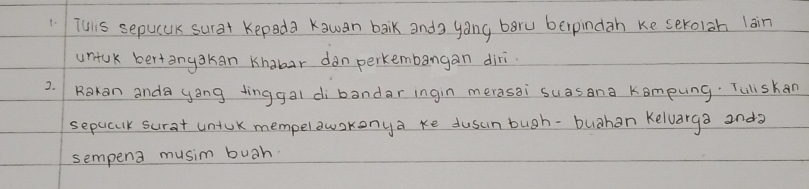 1. Tulis sepucuk surat kepada kawan baik anda yang baru berpindah ke sekolah lain
untuk bertanyakan khabar dan perkembangan diri.
2. Rakan anda yang tinggal di bandar ingin merasai suasana kampung. Tuliskan
sepucuk surat untuk mempelawakanya ke dusun buah-buahan keluarga anda
sempena musim buah.